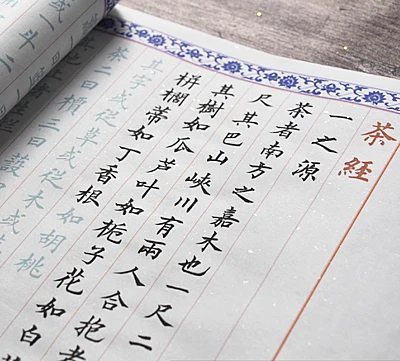 茶經
一之源
茶者南方之嘉木也一尺二
尺其巴山峽川有兩人合抱者
其樹如瓜芦叶如栀子花如白
栟櫚蒂如丁香根如胡桃
其字或從草或從木或
茶二曰檟三曰蔎